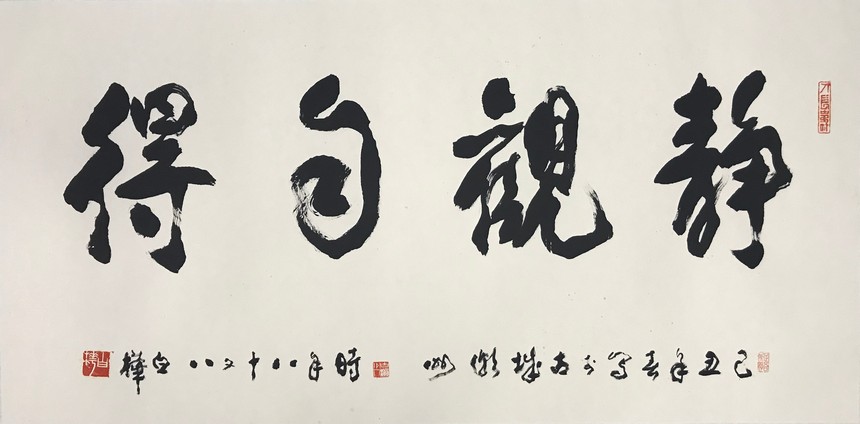 靜觀自得
己丑年春寫于古城徽州
時年八十又八白樺